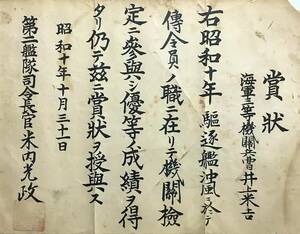 賞狀
海軍三等機關兵曹井上米吉
右昭和十年驅逐艦沖風ニ於テ
傳令員ノ職ニ在リテ機關檢
定ニ參與シ優等ノ成績ヲ得
タリ仍テ玆ニ賞狀ヲ授與ス
昭和十年十月三十一日
第二艦隊司令長官米內光政